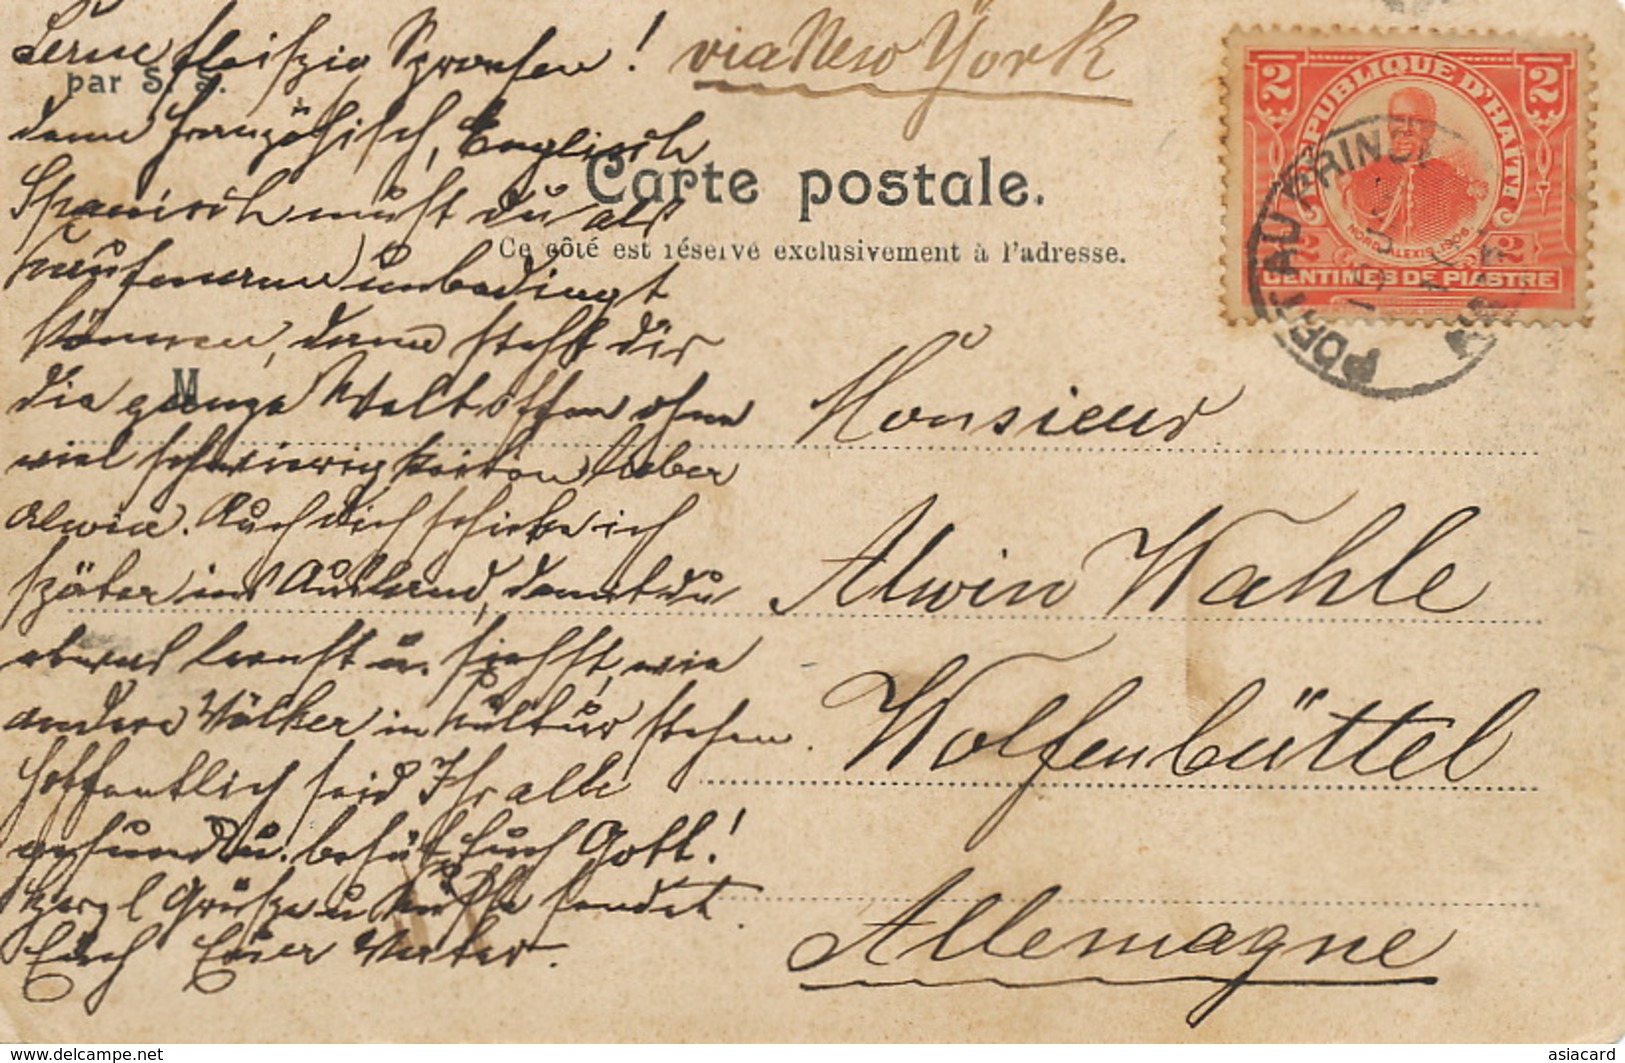 Lerne fleißig Sprachen!
via New York
par S. S.
denn Französisch, Englisch
Spanisch mußt du als
Kaufmann unbedingt
können, dann steht dir
die ganze Welt offen ohne
viel schwierigkeiten lieber
Alwin. Auch dich schicke ich
später ins Ausland, damit du
etwas lernst u. siehst, wie
andere Völker in Kultur stehen.
Hoffentlich seid Ihr alle
gesund u. behüt Euch Gott!
Herzl Grüße u Küsse sendet
Euch Euer Vater.
Carte postale.
Ce côté est réservé exclusivement à l'adresse.
M
Monsieur
Alwin Wahle
Wolfenbüttel
Allemagne
2 2
RÉPUBLIQUE D'HAITI
NORD ALEXIS 1906
2 2
CENTIMES DE PIASTRE
PORT AU PRINCE
delcampe.net
asiacard